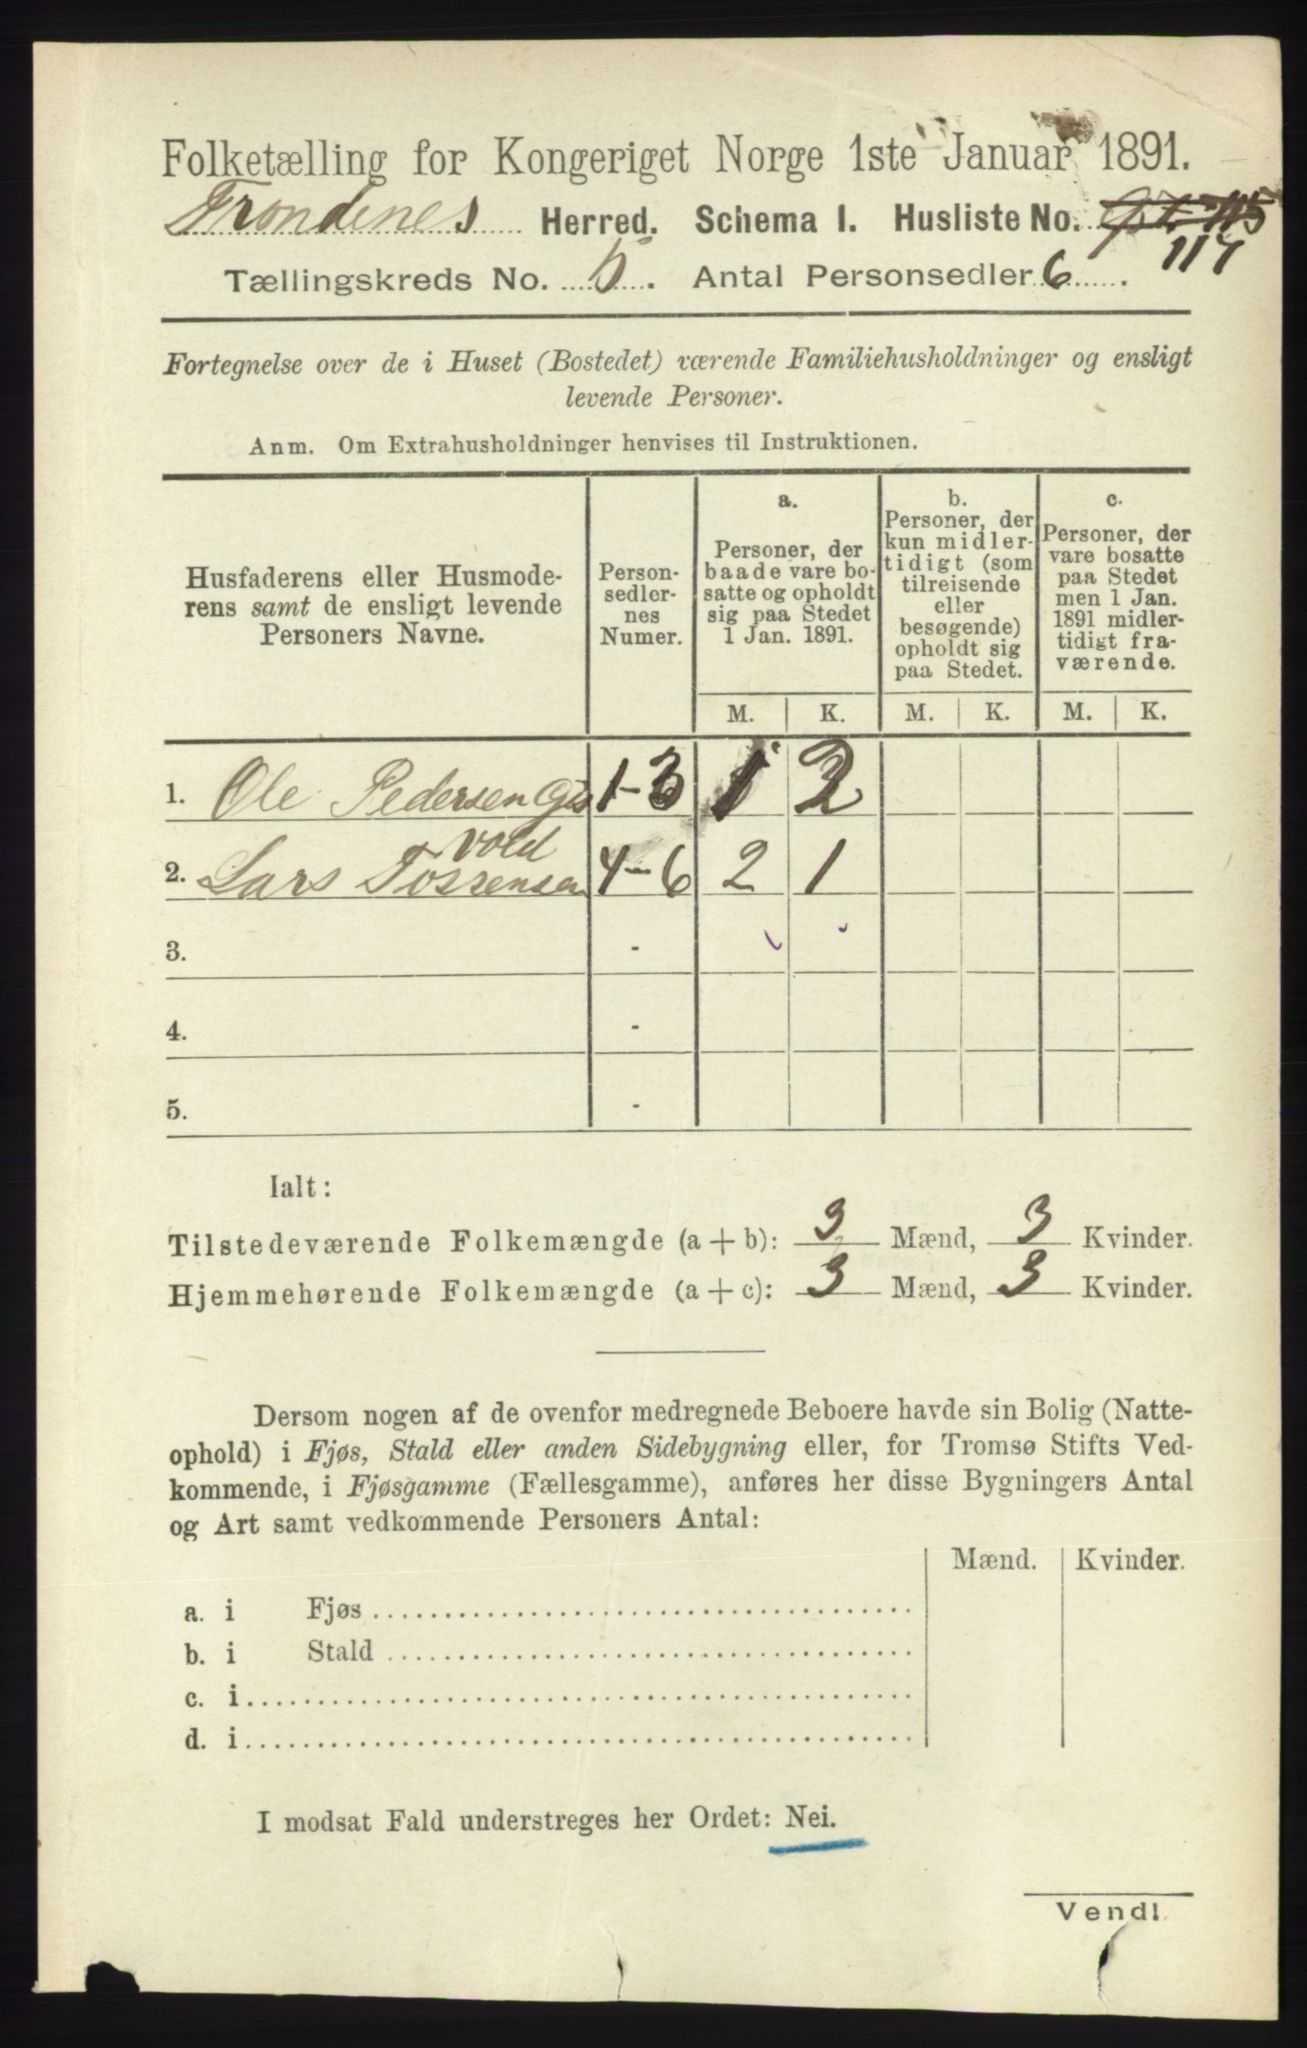 Folketælling for Kongeriget Norge 1ste Januar 1891.
Trondenes Herred. Schema I. Husliste No. 115
117
Tællingskreds No. 5. Antal Personsedler 6.
Fortegnelse over de i Huset (Bostedet) værende Familiehusholdninger og ensligt
levende Personer.
Anm. Om Extrahusholdninger henvises til Instruktionen.
Husfaderens eller Husmode-
rens samt de ensligt levende
Personers Navne.
Person-
sedler-
nes
Numer.
a.
Personer, der
baade vare bo-
satte og opholdt
sig paa Stedet
1 Jan. 1891.
b.
Personer, der
kun midler-
tidigt (som
tilreisende
eller
besøgende)
opholdt sig
paa Stedet.
c.
Personer, der
vare bosatte
paa Stedet
men 1 Jan.
1891 midler-
tidigt fra-
værende.
M. K. M. K. M. K.
1. Ole Pedersen 1-3 1 2
vold
2. Lars Torrensen 4-6 2 1
3. -
4. -
5. -
Ialt:
Tilstedeværende Folkemængde (a + b): 3 Mænd, 3 Kvinder.
Hjemmehørende Folkemængde (a + c): 3 Mænd, 3 Kvinder.
Dersom nogen af de ovenfor medregnede Beboere havde sin Bolig (Natte-
ophold) i Fjøs, Stald eller anden Sidebygning eller, for Tromsø Stifts Ved-
kommende, i Fjøsgamme (Fællesgamme), anføres her disse Bygningers Antal
og Art samt vedkommende Personers Antal:
Mænd. Kvinder.
a. i Fjøs
b. i Stald
c. i
d. i
I modsat Fald understreges her Ordet: Nei.
Vend!